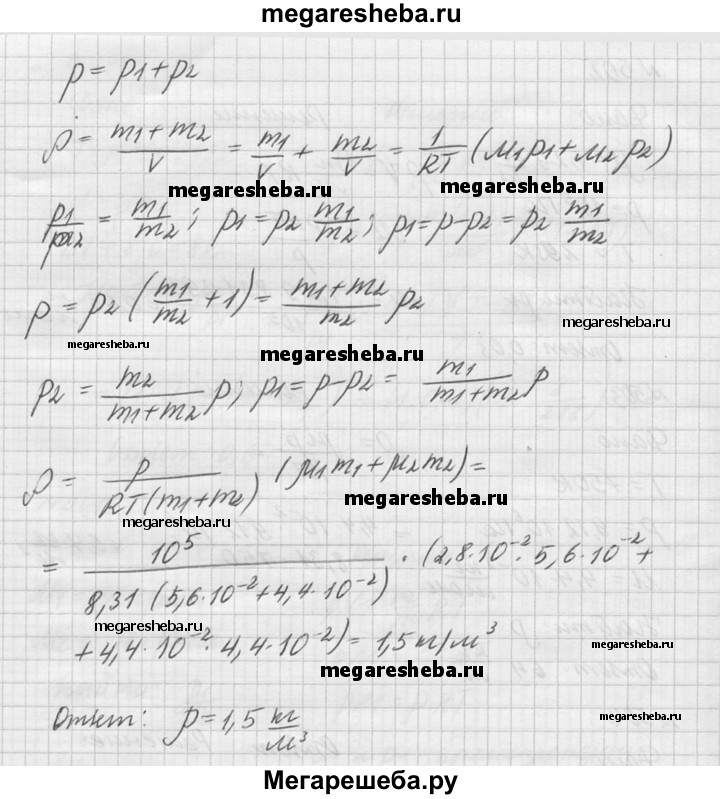 megaresheba.ru
p = p1 + p2
ρ = (m1 + m2)/V = m1/V + m2/V = 1/RT (μ1p1 + μ2p2)
megaresheba.ru megaresheba.ru
p1/p2 = m1/m2; p1 = p2 m1/m2; p1 = p - p2 = p2 m1/m2
p = p2 (m1/m2 + 1) = (m1 + m2)/m2 p2
megaresheba.ru megaresheba.ru megaresheba.ru
p2 = m2/(m1 + m2) p; p1 = p - p2 = m1/(m1 + m2) p
ρ = p/(RT(m1 + m2)) (μ1m1 + μ2m2) =
megaresheba.ru megaresheba.ru
= 10⁵/(8,31 (5,6·10⁻² + 4,4·10⁻²)) · (2,8·10⁻²·5,6·10⁻² +
megaresheba.ru
+ 4,4·10⁻²·4,4·10⁻²) = 1,5 кг/м³
megaresheba.ru megaresheba.ru
Ответ: ρ = 1,5 кг/м³
megaresheba.ru
Мегарешеба.ру